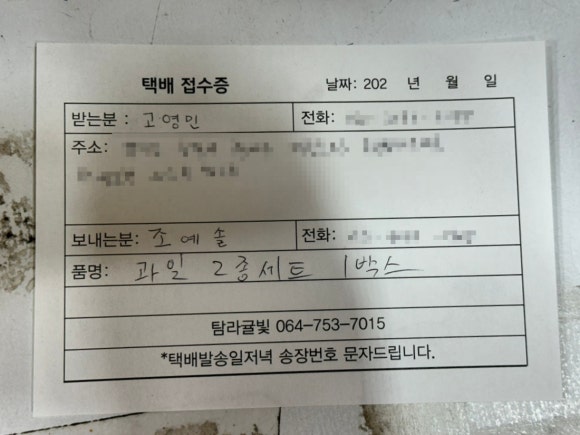 택배 접수증
날짜: 202 년 월 일
받는분 : 고영민
전화:
주소:
보내는분: 조예솔
전화:
품명: 과일 2종세트 1박스
탐라귤빛 064-753-7015
*택배발송일저녁 송장번호 문자드립니다.